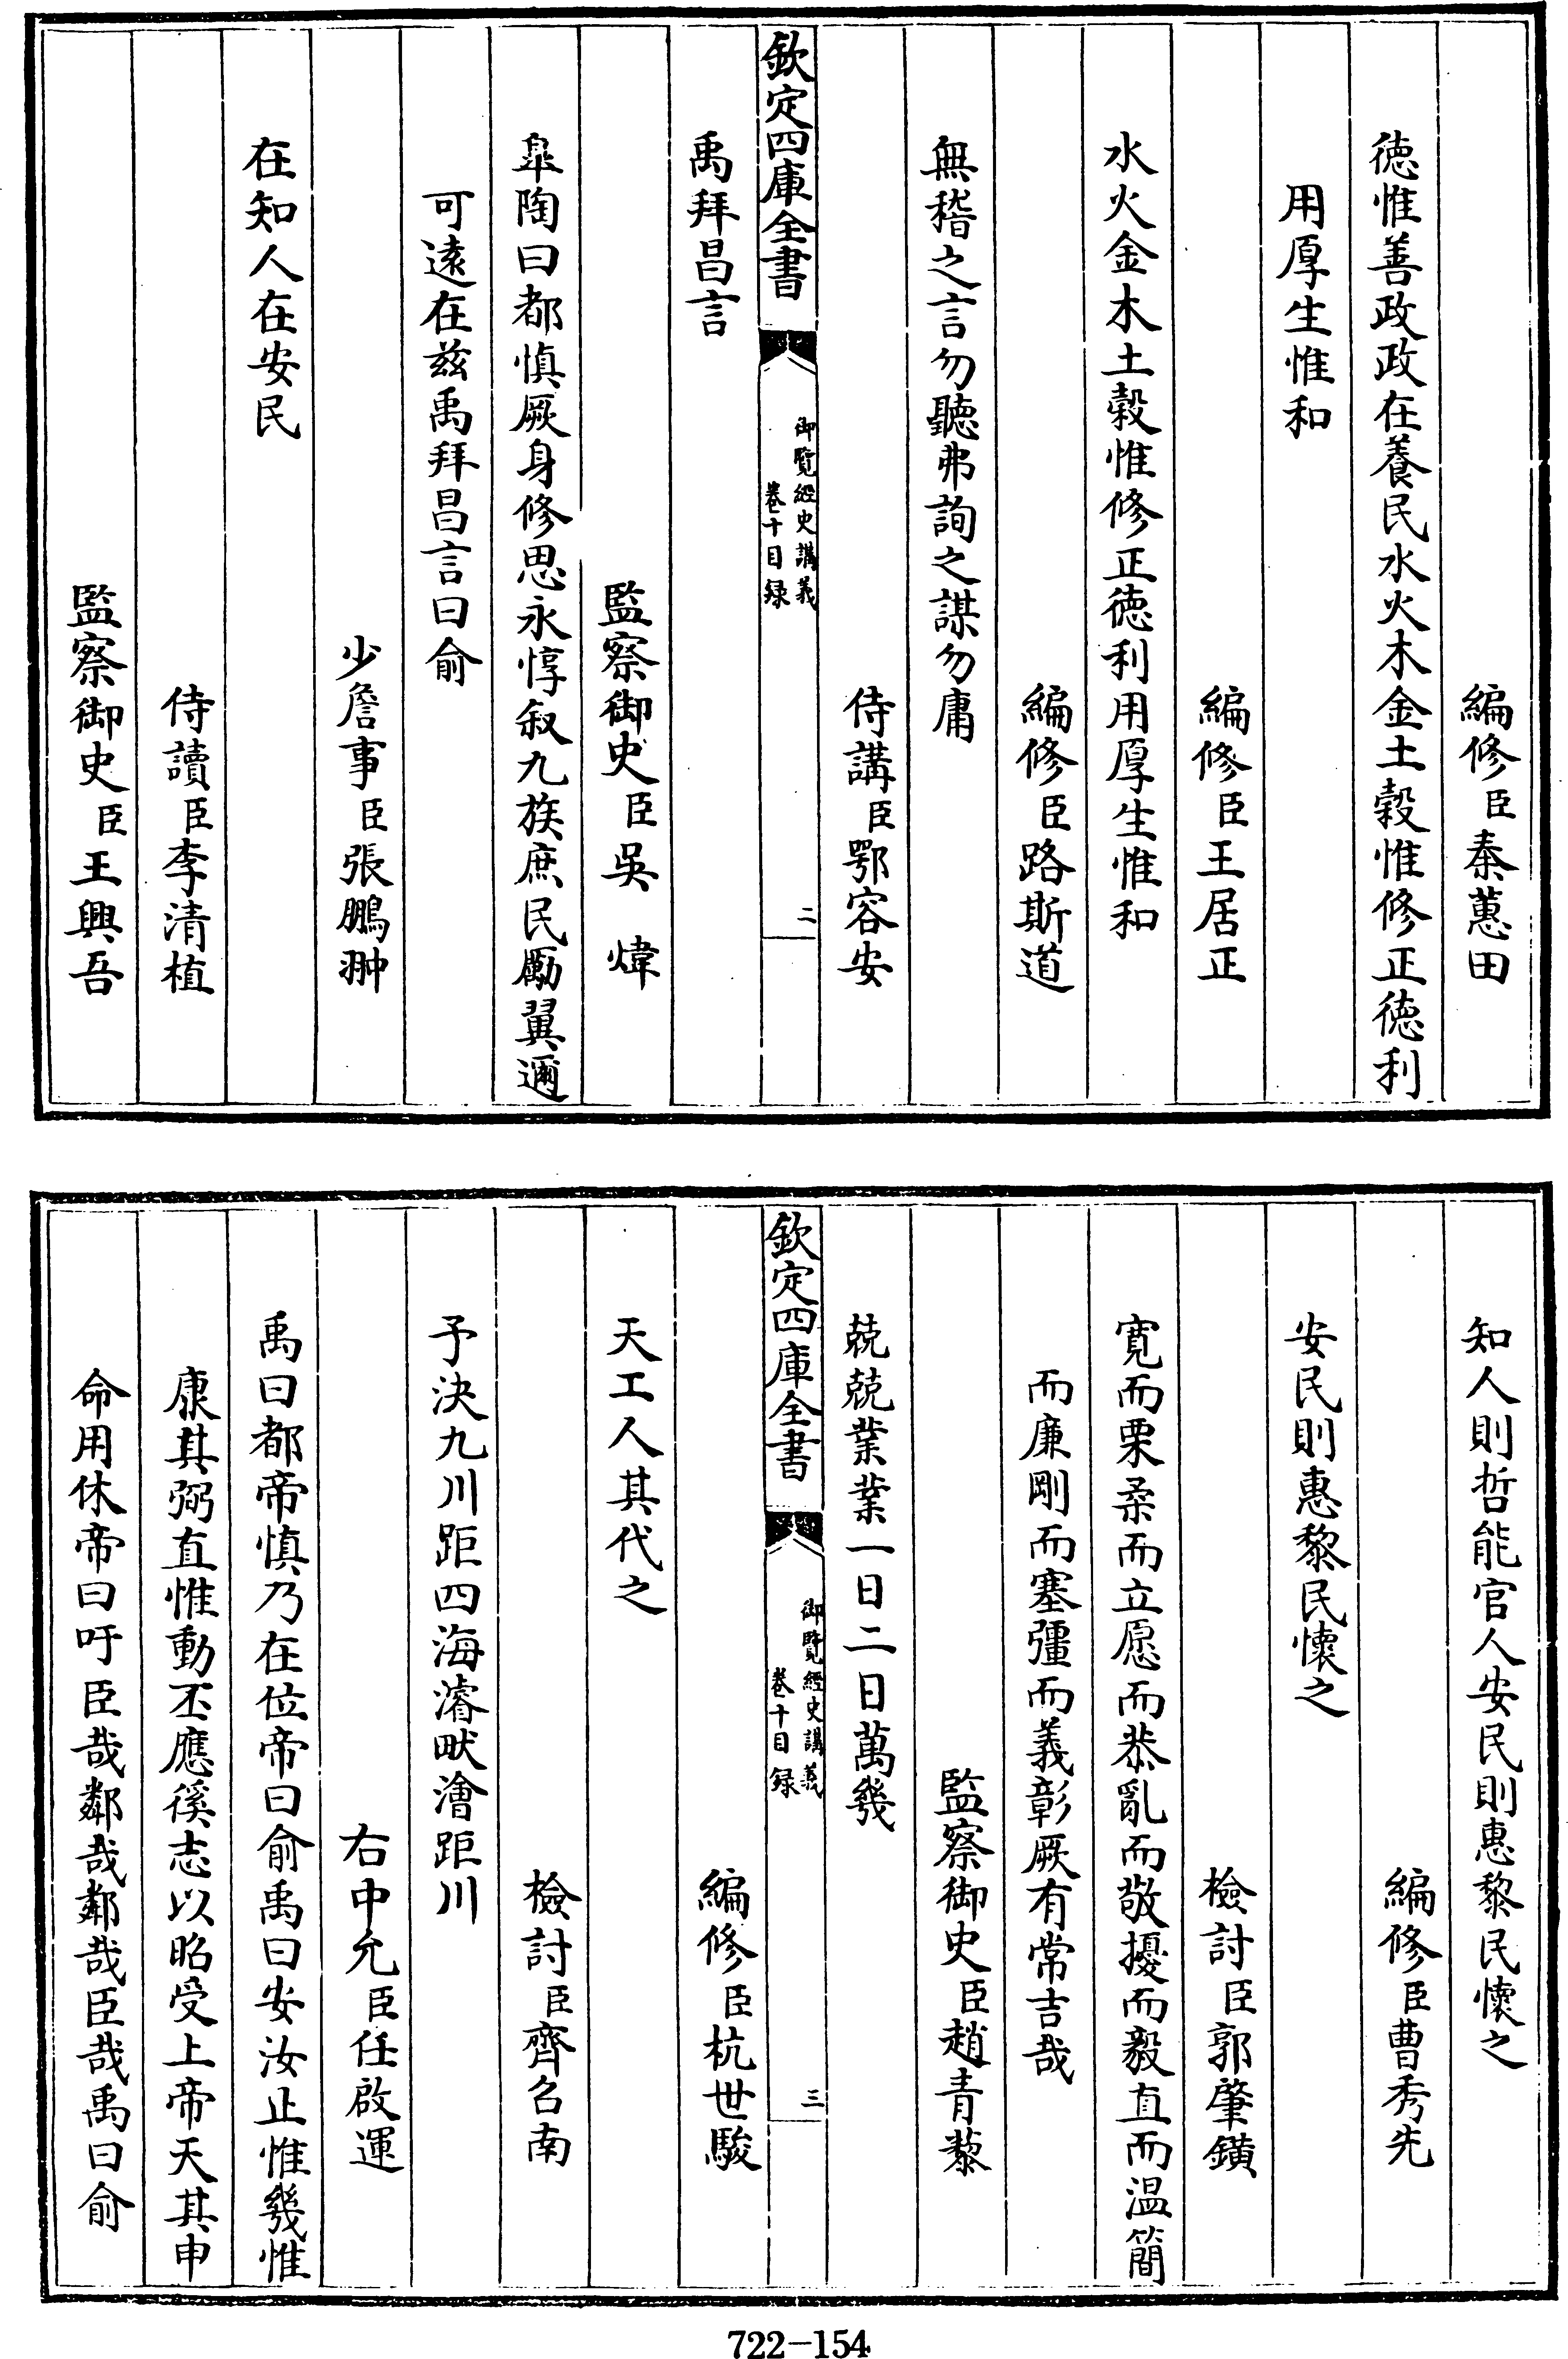 編修臣秦蕙田
德惟善政政在養民水火木金土穀惟修正德利
用厚生惟和
編修臣王居正
水火金木土穀惟修正德利用厚生惟和
編修臣路斯道
無稽之言勿聽弗詢之謀勿庸
侍講臣鄂容安
欽定四庫全書
御覽經史講義
卷十目録
二
禹拜昌言
監察御史臣吳煒
臯陶曰都慎厥身修思永惇叙九族庶民勵翼邇
可遠在兹禹拜昌言曰俞
少詹事臣張鵬翀
在知人在安民
侍讀臣李清植
監察御史臣王興吾
知人則哲能官人安民則惠黎民懷之
編修臣曹秀先
安民則惠黎民懷之
檢討臣郭肇鐄
寛而栗柔而立愿而恭亂而敬擾而毅直而温簡
而廉剛而塞彊而義彰厥有常吉哉
監察御史臣趙青藜
兢兢業業一日二日萬幾
欽定四庫全書
御覽經史講義
卷十目録
三
編修臣杭世駿
天工人其代之
檢討臣齊召南
予決九川距四海濬畎澮距川
右中允臣任啟運
禹曰都帝慎乃在位帝曰俞禹曰安汝止惟幾惟
康其弼直惟動丕應徯志以昭受上帝天其申
命用休帝曰吁臣哉鄰哉鄰哉臣哉禹曰俞
722-154